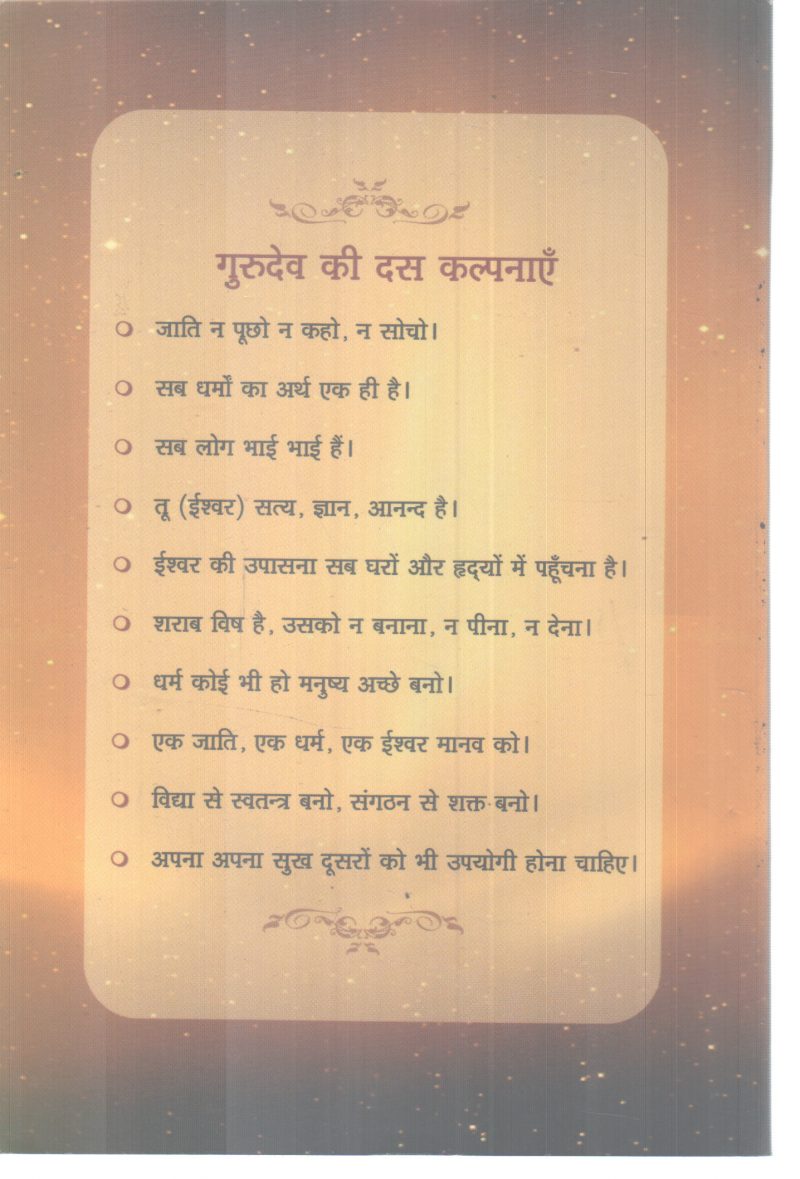 गुरुदेव की दस कल्पनाएँ
जाति न पूछो न कहो, न सोचो।
सब धर्मों का अर्थ एक ही है।
सब लोग भाई भाई हैं।
तू (ईश्वर) सत्य, ज्ञान, आनन्द है।
ईश्वर की उपासना सब घरों और हृद्यों में पहूँचना है।
शराब विष है, उसको न बनाना, न पीना, न देना।
धर्म कोई भी हो मनुष्य अच्छे बनो।
एक जाति, एक धर्म, एक ईश्वर मानव को।
विद्या से स्वतन्त्र बनो, संगठन से शक्त बनो।
अपना अपना सुख दूसरों को भी उपयोगी होना चाहिए।